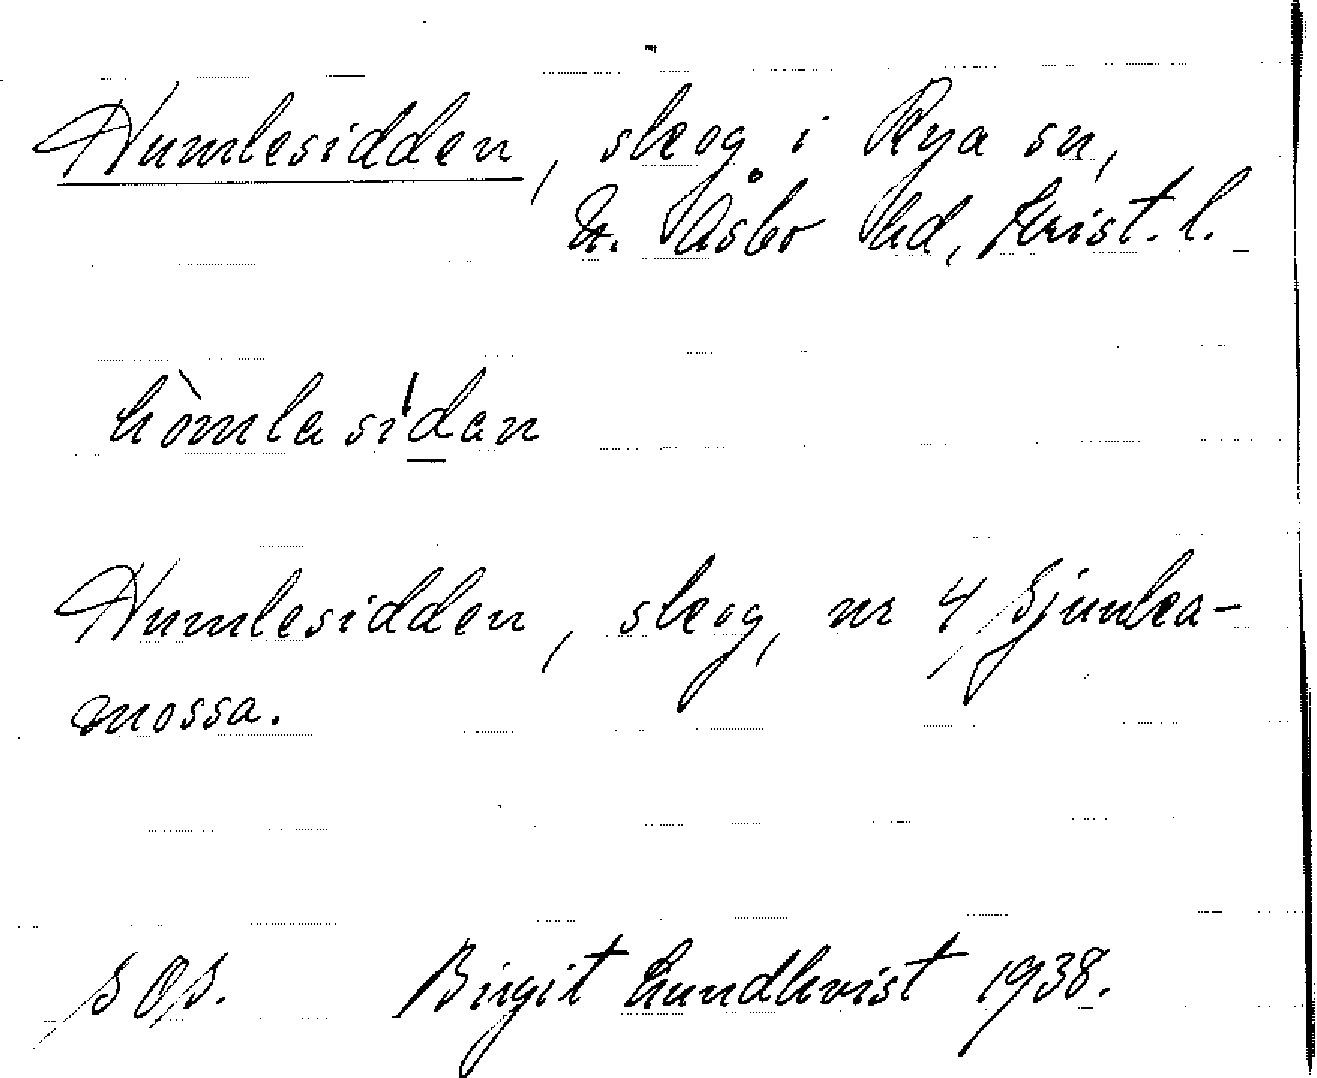 Humlesidden, skog i Rya sn,
N. Åsbo hd, Krist. l.
hòmlasi'dan
Humlesidden, skog, nr 4 Sjunka-
mossa.
SOS. Birgit Lundkvist 1938.